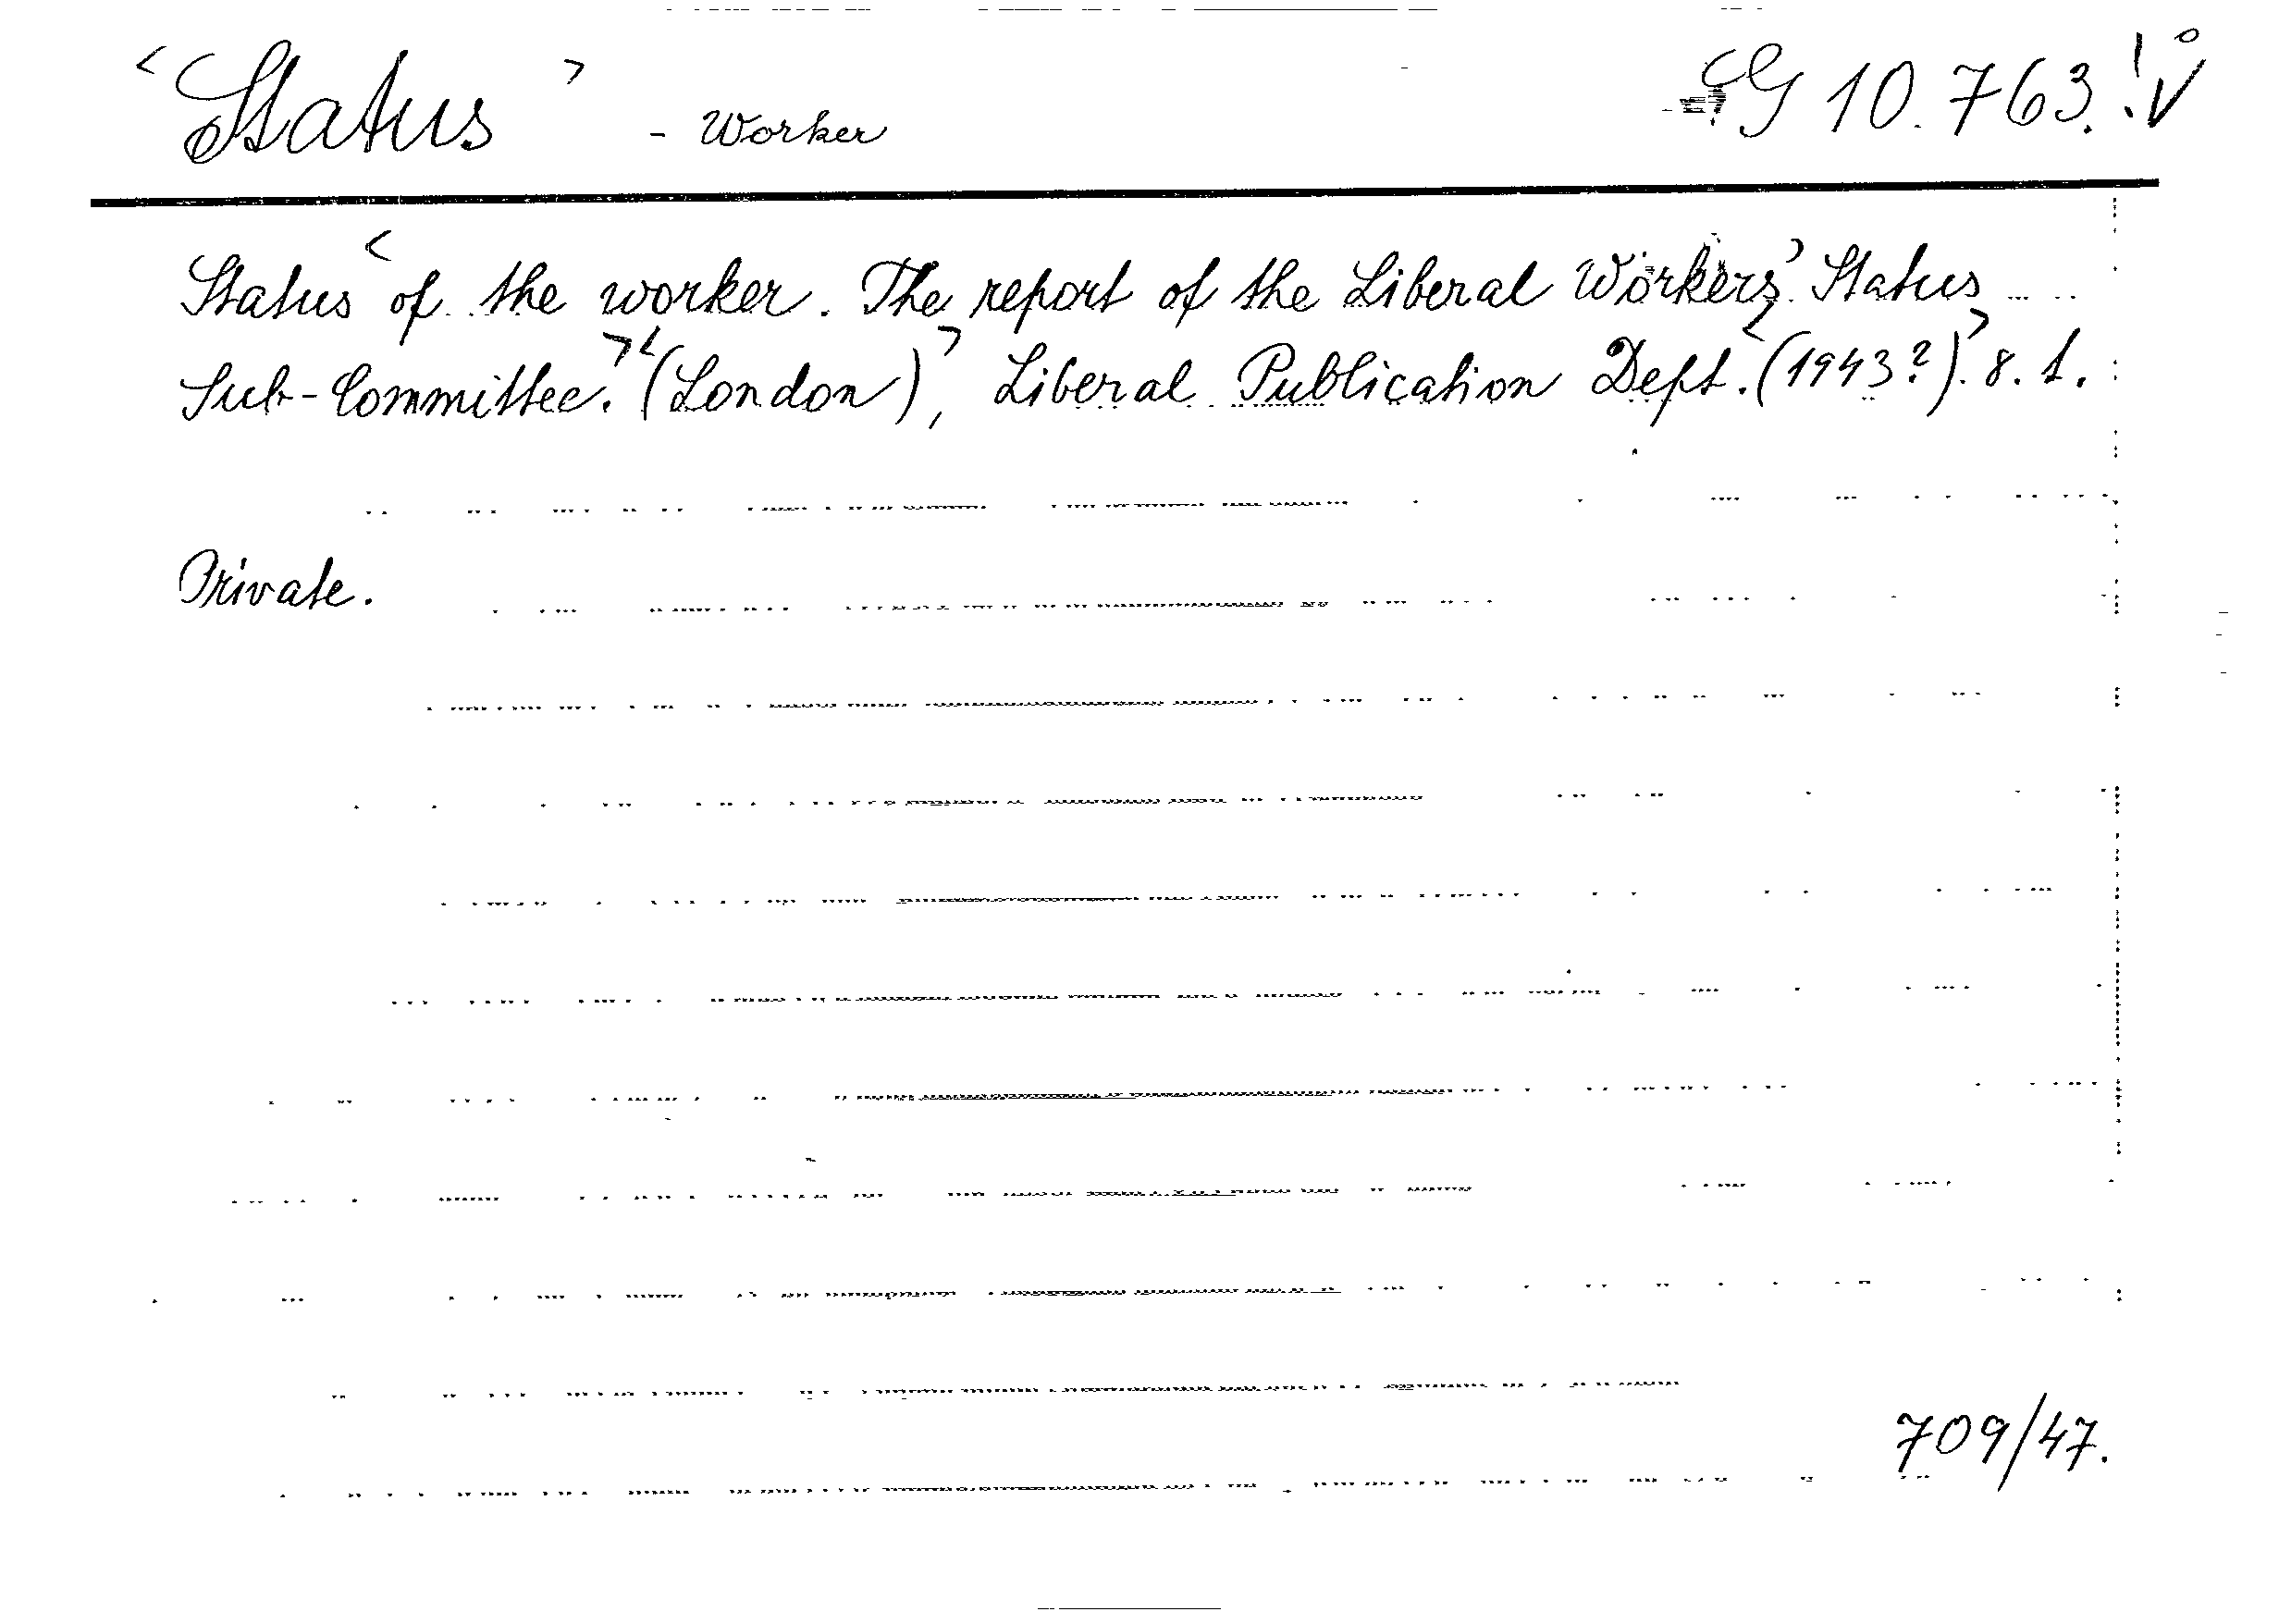 ‹Status› - Worker G 10.763.
Status ‹of the worker. The report of the Liberal Workers' Status
Sub-Committee.› ‹(London)›, Liberal Publication Dept. ‹(1943?)›. 8. 1.
Private.
709/47.